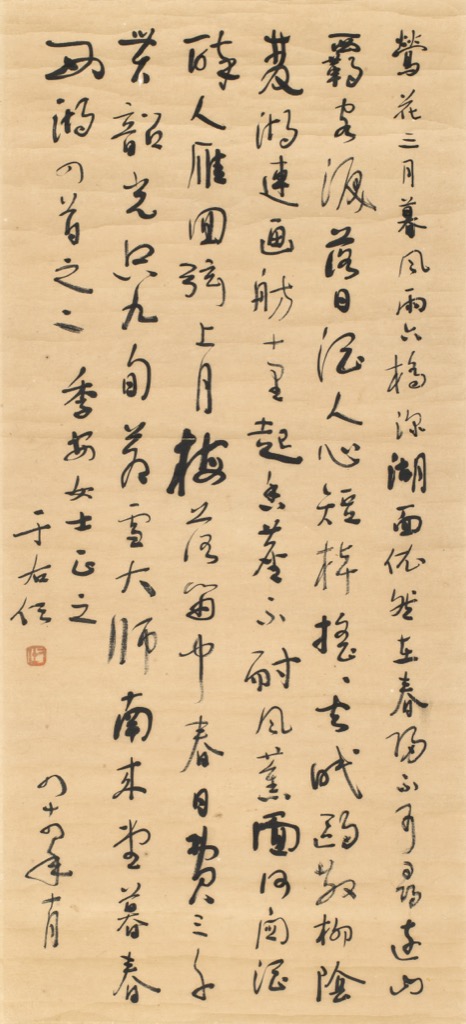 鶯花三月暮風雨六橋深湖面依然在春陽不可尋遠山
羈客淚落日酒人心短棹搖搖去眠鷗散柳陰
湖連画舫十里起香塵不耐風薰面何酒
醉人雁回弦上月梅落笛中春日費三千
貫韶光只九旬蒼雪大師南來堂暮春
西湖四首之二 季安女士正之
于右任
四十四年十月